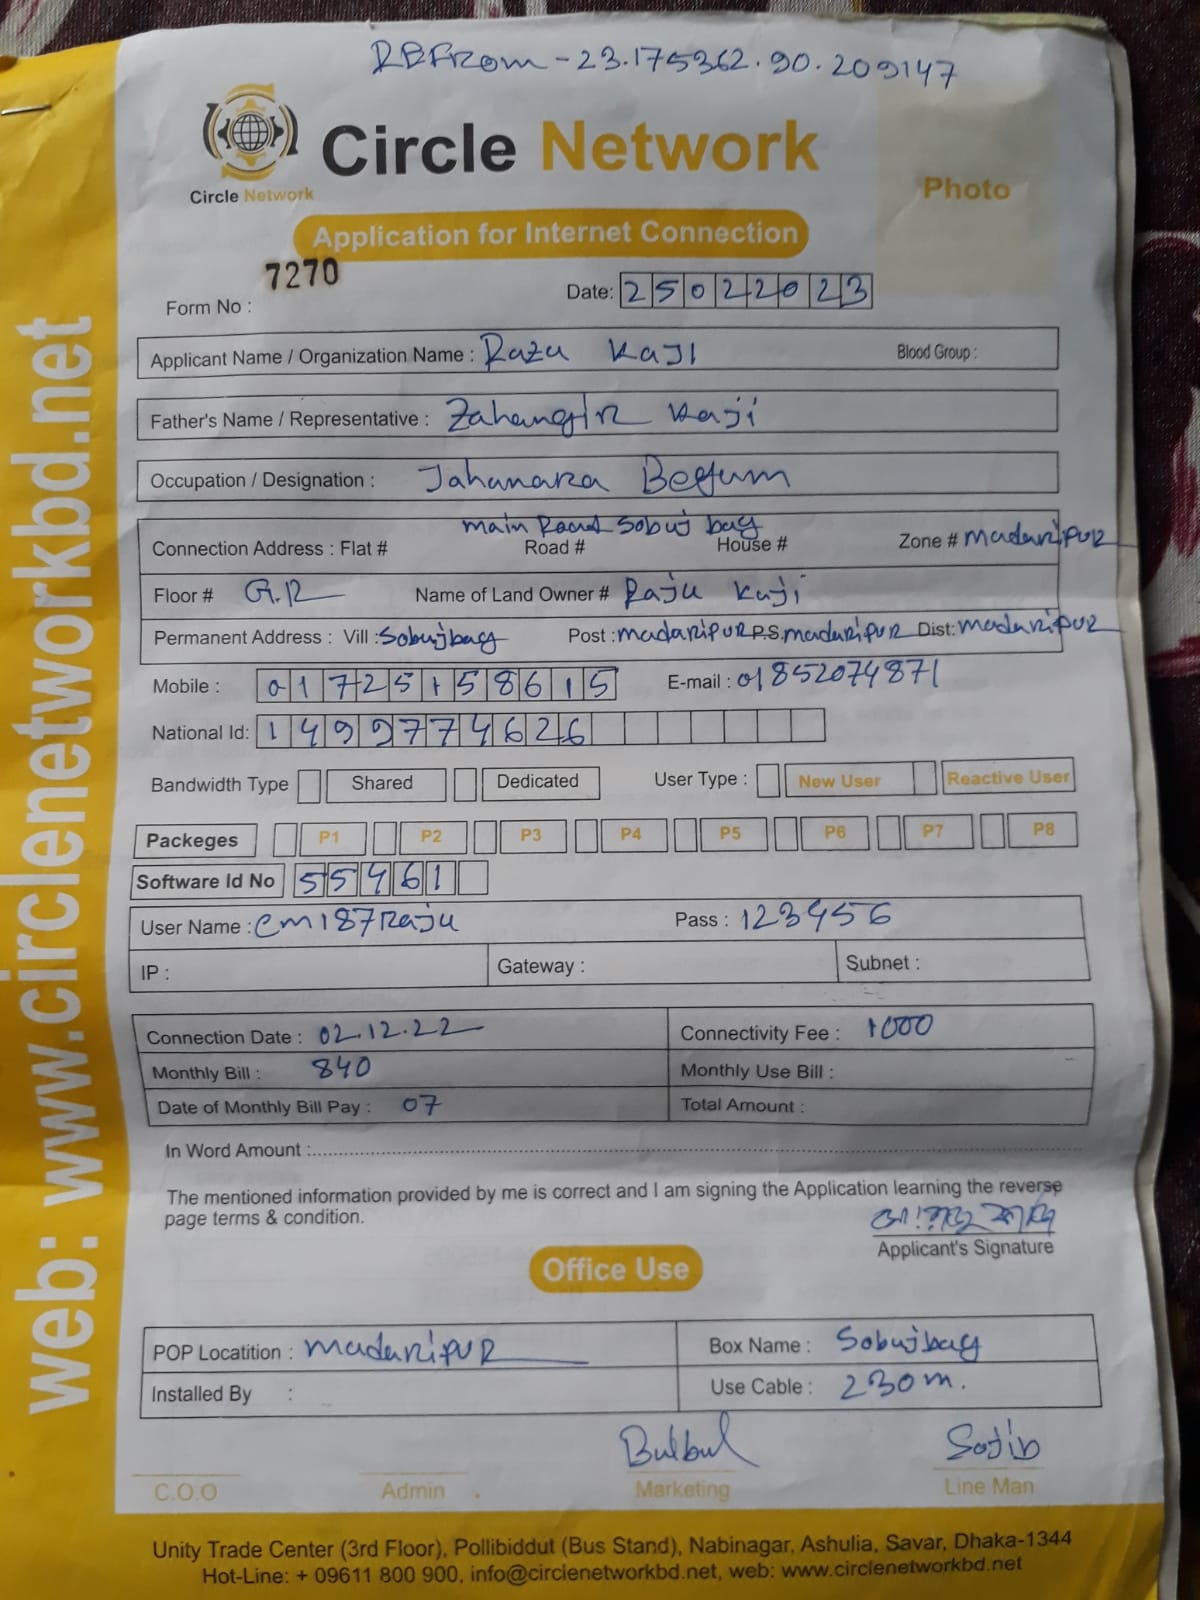 RBFrom - 23.175362.90.209147
Circle Network
Circle Network
Photo
Application for Internet Connection
7270
Form No : Date: 25022023
Applicant Name / Organization Name : Razu Kaji Blood Group :
Father's Name / Representative : Zahangir Kaji
Occupation / Designation : Jahanara Begum
main Road Sobuj bag
Connection Address : Flat # Road # House # Zone # madaripur
Floor # G.R Name of Land Owner # Raju Kaji
Permanent Address : Vill : Sobujbag Post : madaripur P.S. madaripur Dist: madaripur
Mobile : 01725158615 E-mail : 01852074871
National Id: 1499774626
Bandwidth Type Shared Dedicated User Type : New User Reactive User
Packeges P1 P2 P3 P4 P5 P6 P7 P8
Software Id No 55461
User Name : cm187Raju Pass : 123456
IP : Gateway : Subnet :
Connection Date : 02.12.22 Connectivity Fee : 1000
Monthly Bill : 840 Monthly Use Bill :
Date of Monthly Bill Pay : 07 Total Amount :
In Word Amount :
The mentioned information provided by me is correct and I am signing the Application learning the reverse
page terms & condition.
Applicant's Signature
Office Use
POP Locatition : madaripur Box Name : Sobujbag
Installed By : Use Cable : 230m.
Bulbul Sojib
C.O.O Admin Marketing Line Man
Unity Trade Center (3rd Floor), Pollibiddut (Bus Stand), Nabinagar, Ashulia, Savar, Dhaka-1344
Hot-Line: + 09611 800 900, info@circlenetworkbd.net, web: www.circlenetworkbd.net
web: www.circlenetworkbd.net